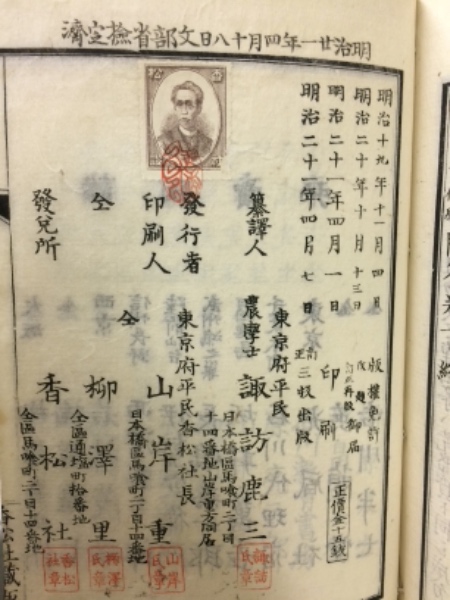 明治廿一年四月十八日文部省檢定濟
明治十九年十一月四日版權免許
明治二十年十月十三日改題御届
明治二十一年四月一日印刷
明治二十一年四月七日訂正三版出版
正價金十五錢
纂譯人
東京府平民
農學士
諏訪鹿三
日本橋區馬喰町二丁目
十四番地山岸重方同居
發行者
印刷人
東京府平民香松社長
山岸重
日本橋區馬喰町二丁目十四番地
仝
仝
柳澤里
仝區通塩町拾番地
發兌所
香松社
仝區馬喰町二丁目十四番地
諏訪氏章
山岸氏章
柳澤氏章
香松社章